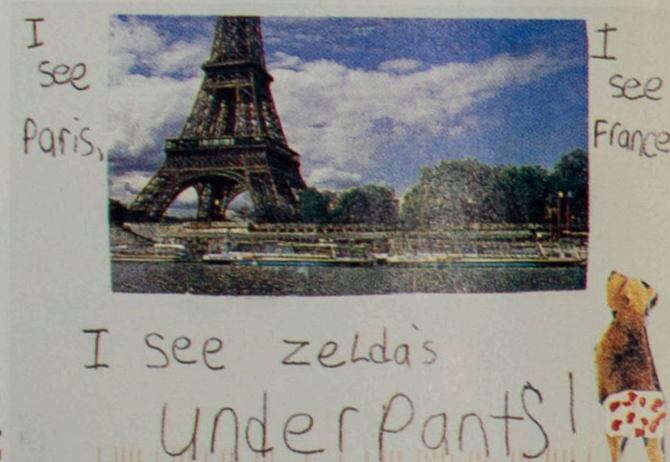 I
see
Paris,
I
see
France
I see zeldas
underpants!